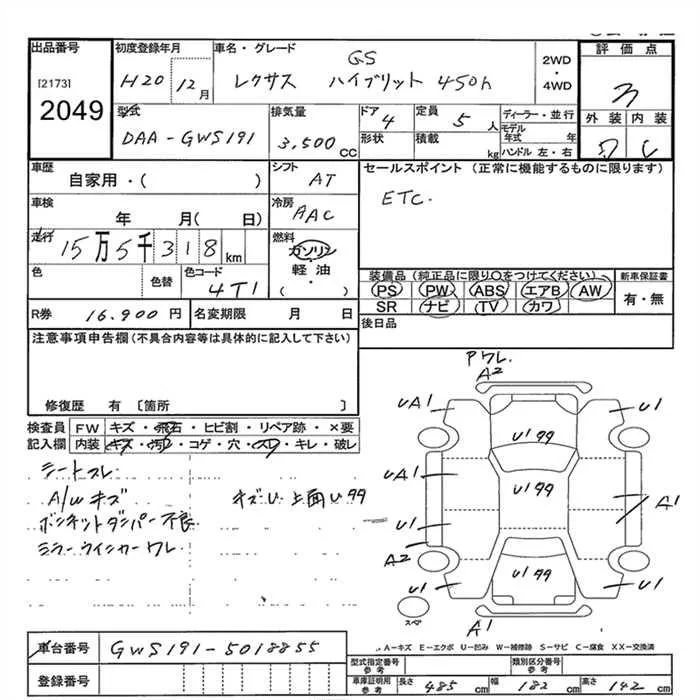 出品番号 初度登録年月 車名・グレード 評価点
[2173] H20 12月 レクサス GS ハイブリット 450h 2WD・4WD
2049 3
型式 排気量 ドア 定員 ディーラー・並行 外装 内装
DAA-GWS191 3,500cc 4 5人 モデル年式 年
形状 積載 kg ハンドル 左・右 C
車歴 シフト セールスポイント (正常に機能するものに限ります)
自家用・( ) AT ETC.
車検 冷房
年 月( 日) AAC
走行 燃料
15万5千318km ガソリン・軽油・( )
色 色替 色コード 装備品 (純正品に限り○をつけてください) 新車保証書
4T1 PS PW ABS エアB AW 有・無
SR ナビ TV カワ
R券 16.900円 名変期限 月 日 後日品
注意事項申告欄(不具合内容等は具体的に記入して下さい)
修復歴 有 〔箇所 〕
検査員 FW キズ・飛石・ヒビ割・リペア跡・×要
記入欄 内装 キズ・汚れ・コゲ・穴・スレ・キレ・破レ
シートスレ
A/Wキズ キズU 上面U99
ボンネットダンパー不良
ミラーウインカーワレ
Pワレ
A2
UA1 U1
U199
UA1 U199
U1 A1
A2
U1 U199 U1
スペア A1
A-キズ E-エクボ U-凹み W-補修跡 S-サビ C-腐食 XX-交換済
車台番号 GWS191-5018855
登録番号
型式指定番号参考 類別区分番号参考
車庫証明用参考 長さ 485cm 幅 182cm 高さ 142cm